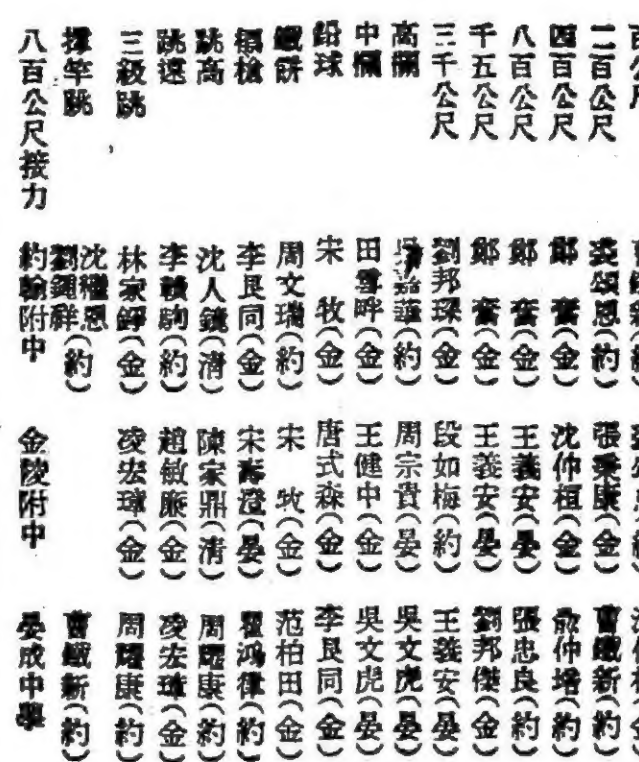 百公尺
二百公尺 裘頌恩(約) 張秉康(金) 曹鐵新(約)
四百公尺 鄭 奮(金) 沈仲桓(金) 俞仲培(約)
八百公尺 鄭 奮(金) 王義安(晏) 張忠良(約)
千五公尺 鄭 奮(金) 王義安(晏) 劉邦傑(金)
三千公尺 劉邦琛(金) 段如梅(約) 王義安(晏)
高欄 (約) 周宗貴(晏) 吳文虎(晏)
中欄 田雪呼(金) 王健中(金) 吳文虎(晏)
鉛球 宋 牧(金) 唐式森(金) 李艮同(金)
鐵餅 周文瑞(約) 宋 牧(金) 范柏田(金)
標槍 李艮同(金) 宋壽澄(晏) 瞿鴻律(約)
跳高 沈人鏡(清) 陳家鼎(清) 周曜康(約)
跳遠 李贛駒(約) 趙敏廉(金) 凌宏璋(金)
三級跳 林家錚(金) 凌宏璋(金) 周曜康(約)
撐竿跳 沈權恩 劉鍾祥(約) 曹鐵新(約)
八百公尺接力 約翰附中 金陵附中 晏成中學